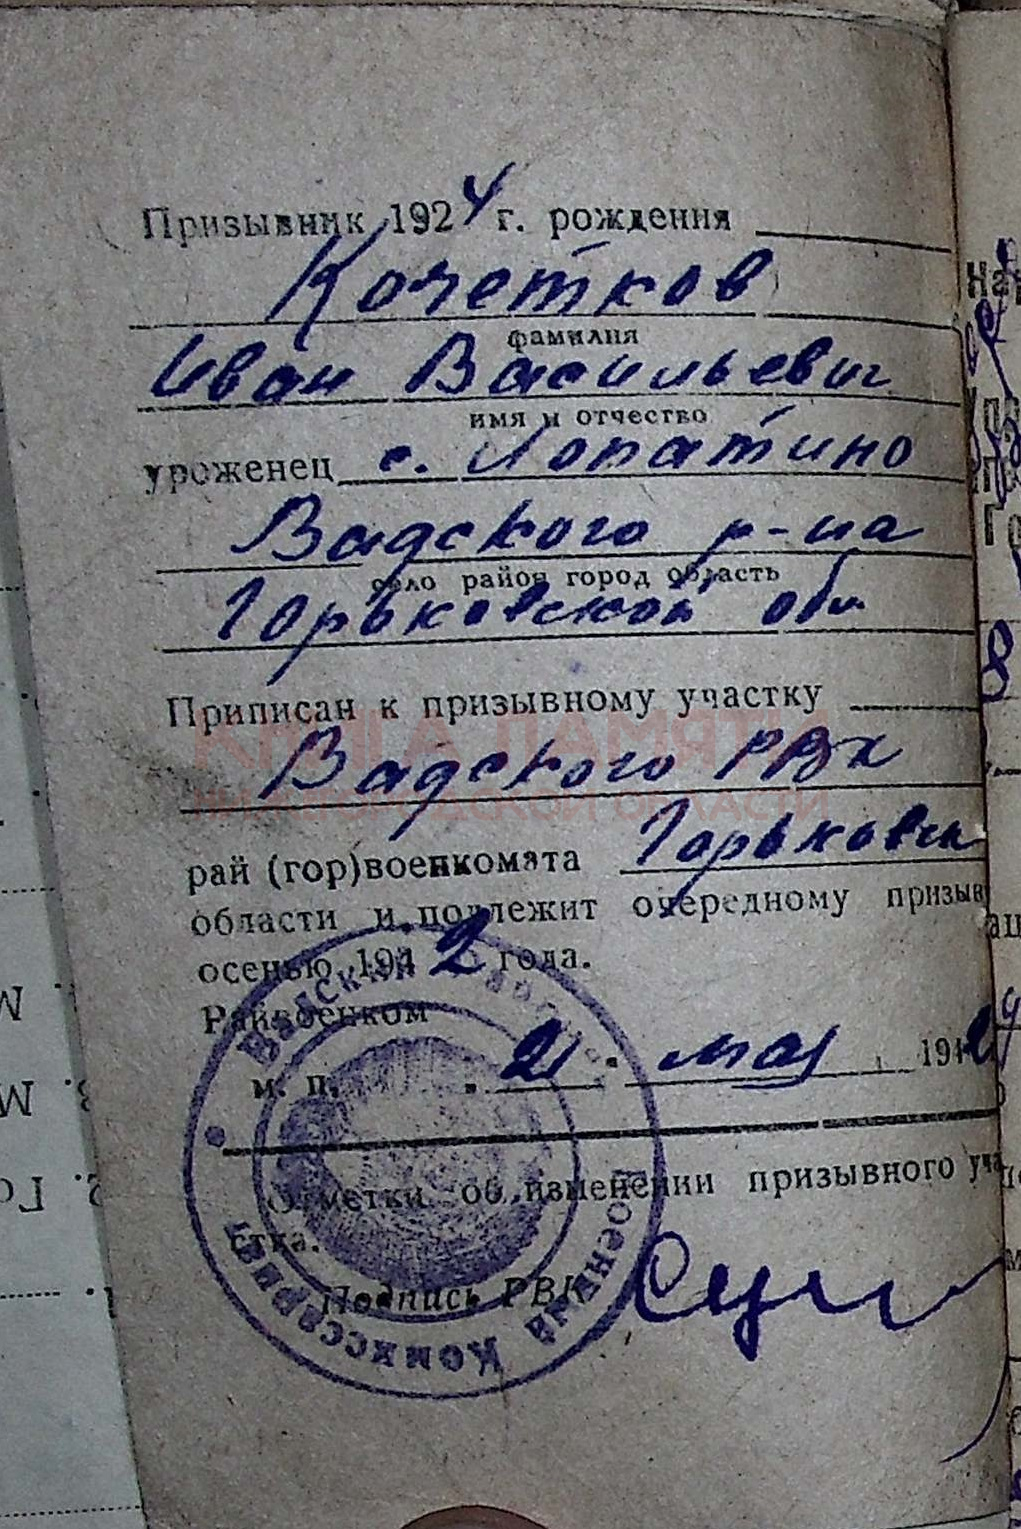 Призывник 1924 г. рождения
Кочетков
фамилия
Иван Васильевич
имя и отчество
уроженец с. Лопатино
Вадского р-на
село район город область
Горьковской обл
Приписан к призывному участку
КНИГА ПАМЯТИ
Вадского РВК
НИЖЕГОРОДСКОЙ ОБЛАСТИ
рай (гор)военкомата Горьковск
области и подлежит очередному призыв
осенью 1942 года.
Райвоенком
м. п. мая 194
Отметки об изменении призывного уча
стка.
Подпись РВК
Вадский Военный Комиссариат